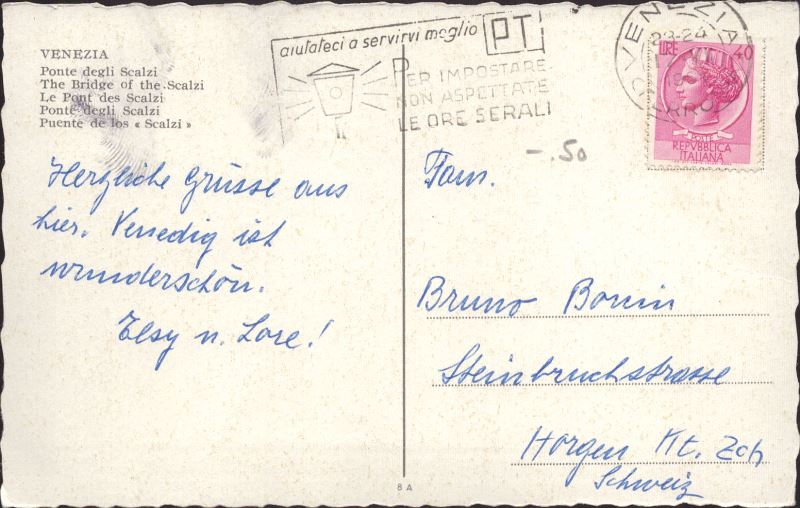 VENEZIA
Ponte degli Scalzi
The Bridge of the Scalzi
Le Pont des Scalzi
Ponte degli Scalzi
Puente de los « Scalzi »
aiutateci a servirvi meglio PT
PER IMPOSTARE
NON ASPETTATE
LE ORE SERALI
VENEZIA
23-24
LIRE 40
POSTE
REPVBBLICA
ITALIANA
-.50
Herzliche Grüsse aus
hier. Venedig ist
wunderschön.
Elsy u. Lore!
Fam.
Bruno Bonin
Steinbruchstrasse
Horgen Kt. Zch
Schweiz
8 A